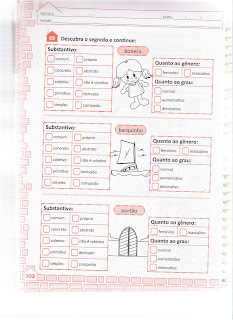 ESCOLA
DATA
NOME
Descubra o segredo e continue:
Substantivo:
comum próprio
concreto abstrato
coletivo não é coletivo
primitivo derivado
simples composto
boneca
Quanto ao gênero:
feminino masculino
Quanto ao grau:
normal
aumentativo
diminutivo
Substantivo:
comum próprio
concreto abstrato
coletivo não é coletivo
primitivo derivado
simples composto
barquinho
Quanto ao gênero:
feminino masculino
Quanto ao grau:
normal
aumentativo
diminutivo
Substantivo:
comum próprio
concreto abstrato
coletivo não é coletivo
primitivo derivado
simples composto
portão
Quanto ao gênero:
feminino masculino
Quanto ao grau:
normal
aumentativo
diminutivo
102